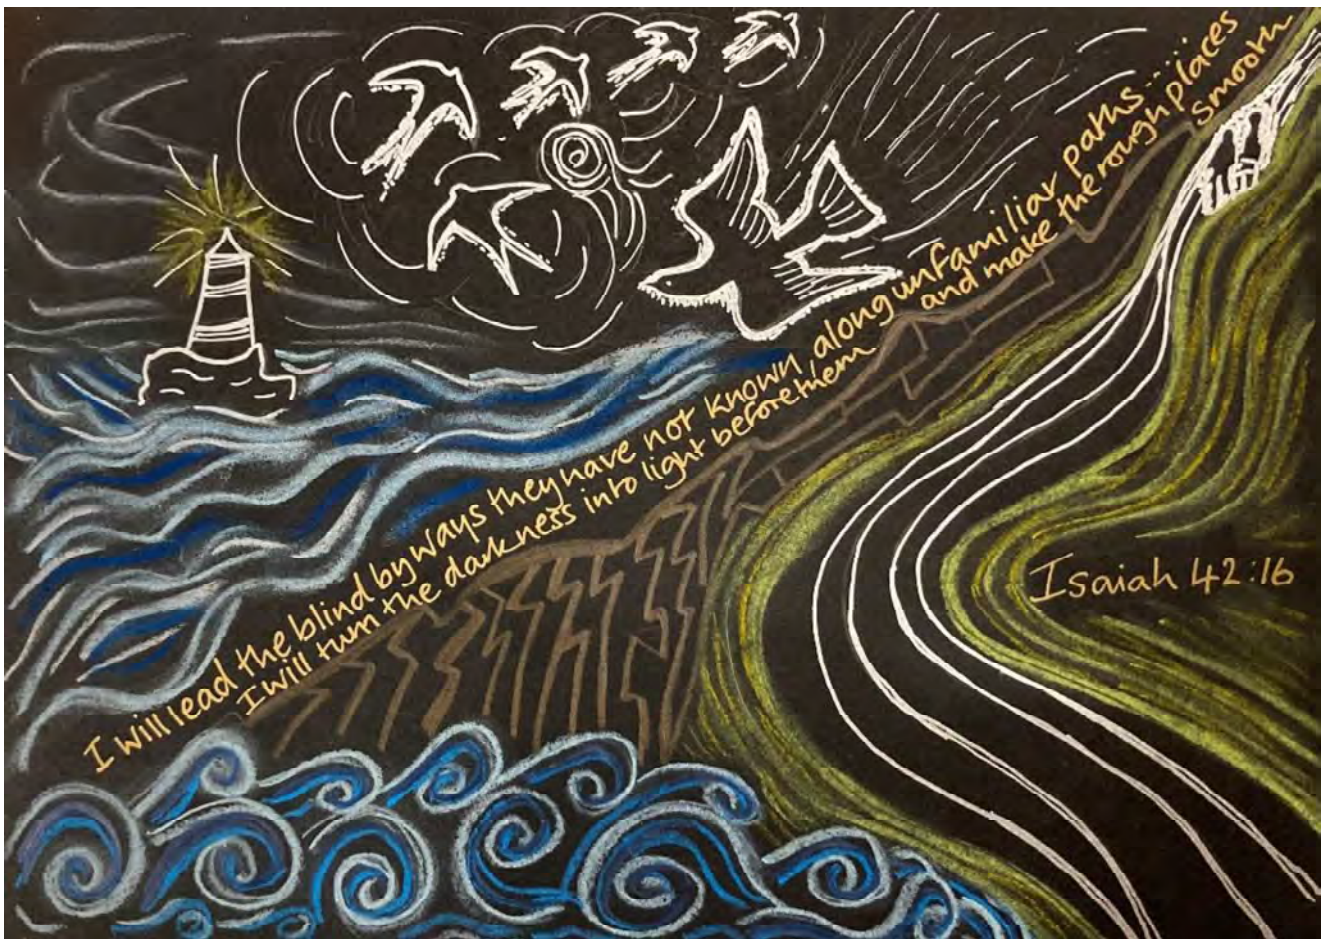 I will lead the blind by ways they have not known, along unfamiliar paths.....
I will turn the darkness into light before them and make the rough places
smooth
Isaiah 42:16